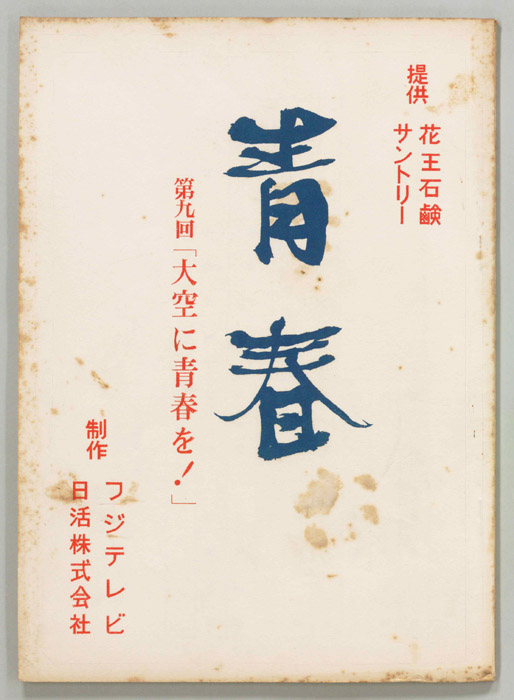 提供
花王石鹸
サントリー
青春
第九回「大空に青春を!」
制作
フジテレビ
日活株式会社